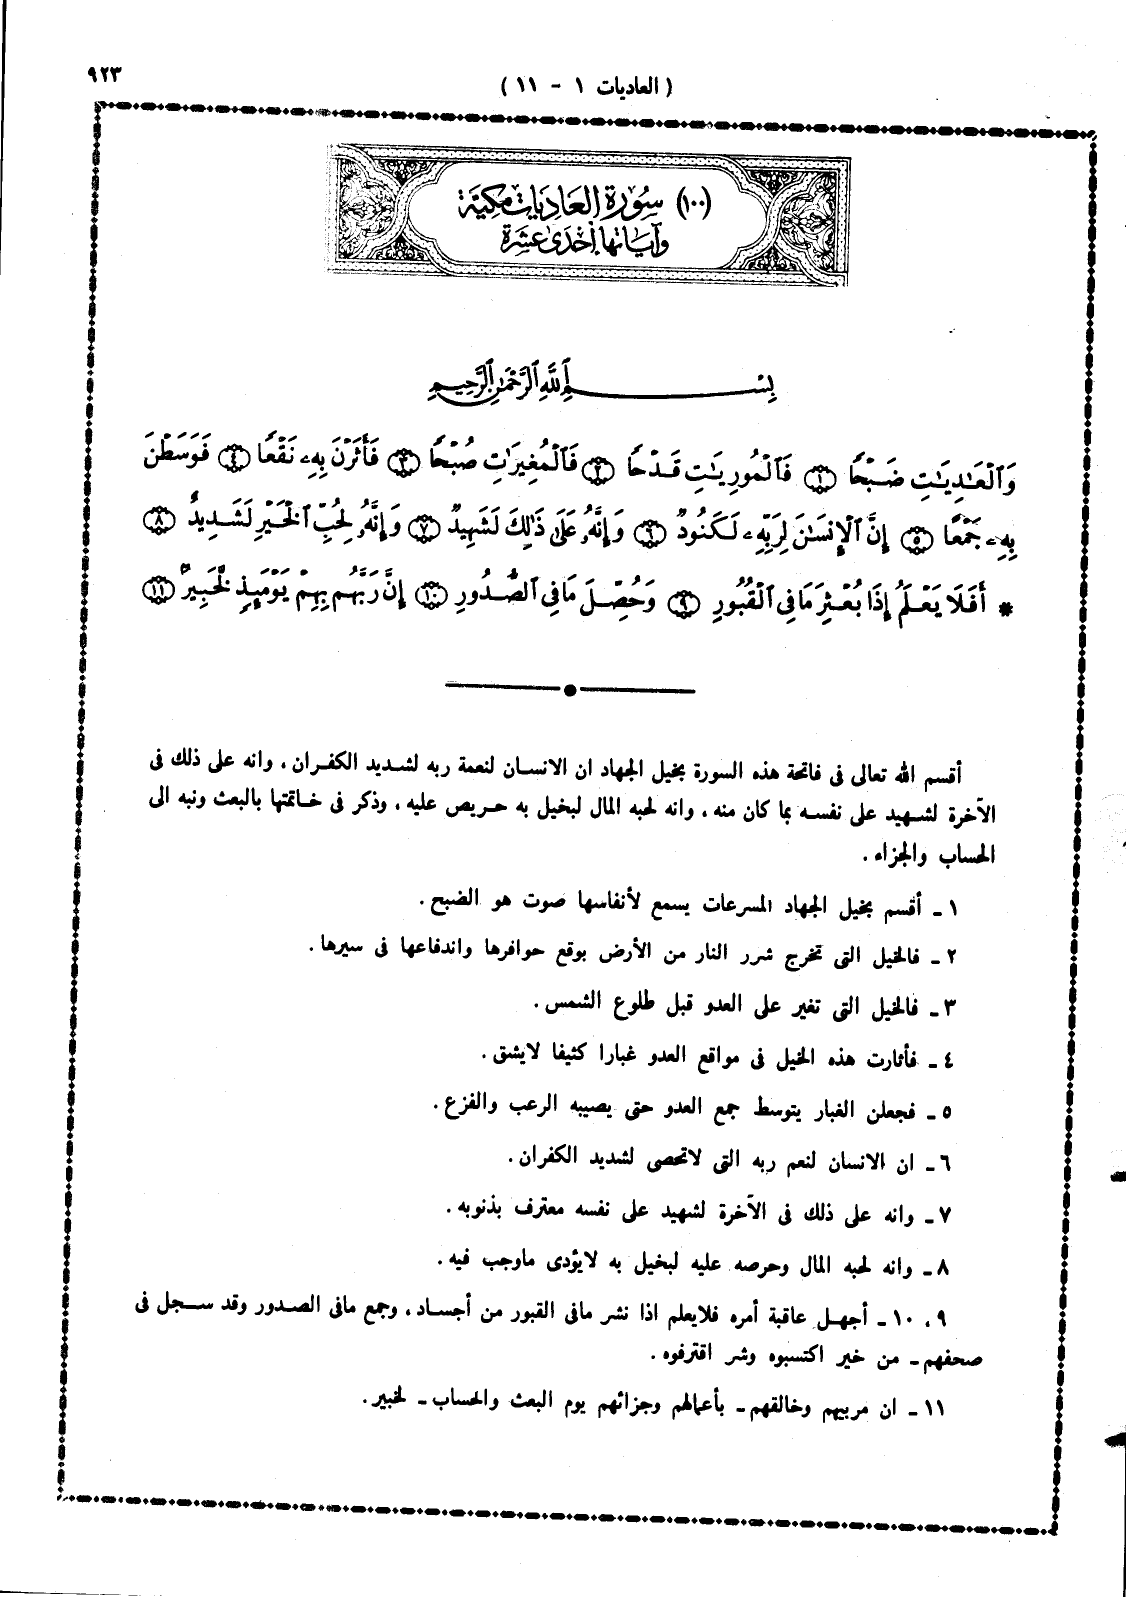 ٩٢٣
( العاديات ١ - ١١ )
(١٠٠) سُورَة العَاديَات مكيّة
وَآيَاتهَا إحْدَى عَشَرة
بِسْمِ ٱللَّهِ ٱلرَّحْمَٰنِ ٱلرَّحِيمِ
وَٱلْعَٰدِيَٰتِ ضَبْحًا ١ فَٱلْمُورِيَٰتِ قَدْحًا ٢ فَٱلْمُغِيرَٰتِ صُبْحًا ٣ فَأَثَرْنَ بِهِۦ نَقْعًا ٤ فَوَسَطْنَ
بِهِۦ جَمْعًا ٥ إِنَّ ٱلْإِنسَٰنَ لِرَبِّهِۦ لَكَنُودٌ ٦ وَإِنَّهُۥ عَلَىٰ ذَٰلِكَ لَشَهِيدٌ ٧ وَإِنَّهُۥ لِحُبِّ ٱلْخَيْرِ لَشَدِيدٌ ٨
* أَفَلَا يَعْلَمُ إِذَا بُعْثِرَ مَا فِى ٱلْقُبُورِ ٩ وَحُصِّلَ مَا فِى ٱلصُّدُورِ ١٠ إِنَّ رَبَّهُم بِهِمْ يَوْمَئِذٍ لَّخَبِيرٌ ١١
أقسم الله تعالى فى فاتحة هذه السورة بخيل الجهاد ان الانسان لنعمة ربه لشديد الكفران ، وانه على ذلك فى
الآخرة لشهيد على نفسه بما كان منه ، وانه لحبه المال لبخيل به حريص عليه ، وذكر فى خاتمتها بالبعث ونبه الى
الحساب والجزاء .
١ ـ أقسم بخيل الجهاد المسرعات يسمع لأنفاسها صوت هو الضبح .
٢ ـ فالخيل التى تخرج شرر النار من الأرض بوقع حوافرها واندفاعها فى سيرها .
٣ ـ فالخيل التى تغير على العدو قبل طلوع الشمس .
٤ ـ فأثارت هذه الخيل فى مواقع العدو غبارا كثيفا لايشق .
٥ ـ فجعلن الغبار يتوسط جمع العدو حتى يصيبه الرعب والفزع .
٦ ـ ان الانسان لنعم ربه التى لاتحصى لشديد الكفران .
٧ ـ وانه على ذلك فى الآخرة لشهيد على نفسه معترف بذنوبه .
٨ ـ وانه لحبه المال وحرصه عليه لبخيل به لايؤدى ماوجب فيه .
٩ ، ١٠ ـ أجهل عاقبة أمره فلايعلم اذا نشر مافى القبور من أجساد ، وجمع مافى الصدور وقد سجل فى
صحفهم ـ من خير اكتسبوه وشر اقترفوه .
١١ ـ ان مربيهم وخالقهم ـ بأعمالهم وجزائهم يوم البعث والحساب ـ لخبير .